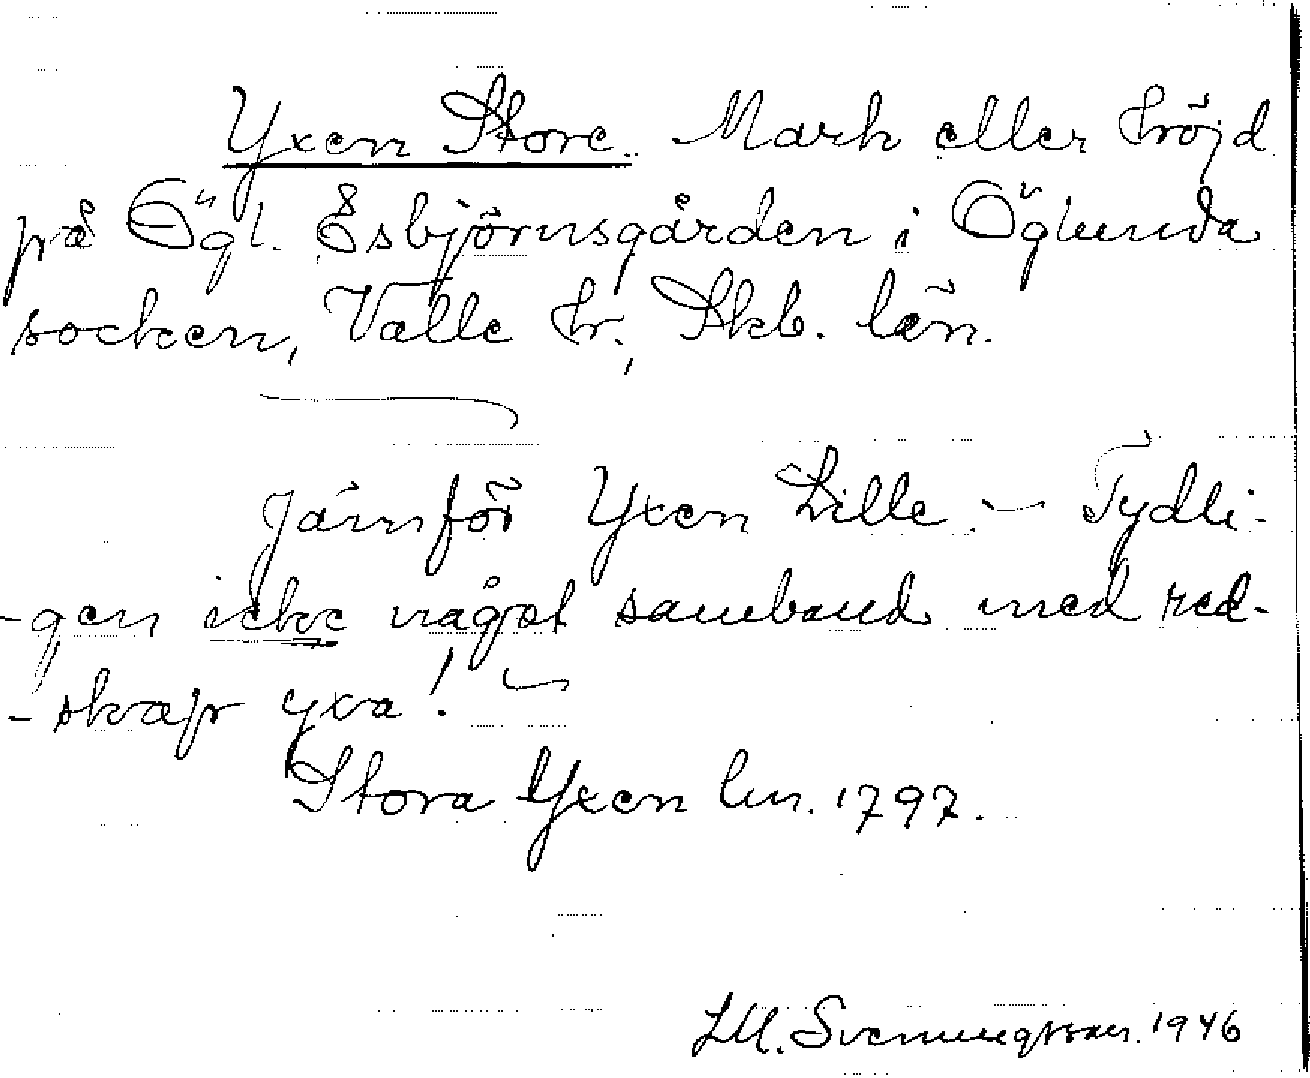 Yxen Store. Mark eller höjd
på Ögl. Esbjörnsgården i Öglunda
socken, Valle hr., Skb. län.
Jämför Yxen Lille. — Tydli-
-gen icke något samband med red-
-skap yxa!
Stora Yxen lm. 1797.
LM. Svenungsson. 1946